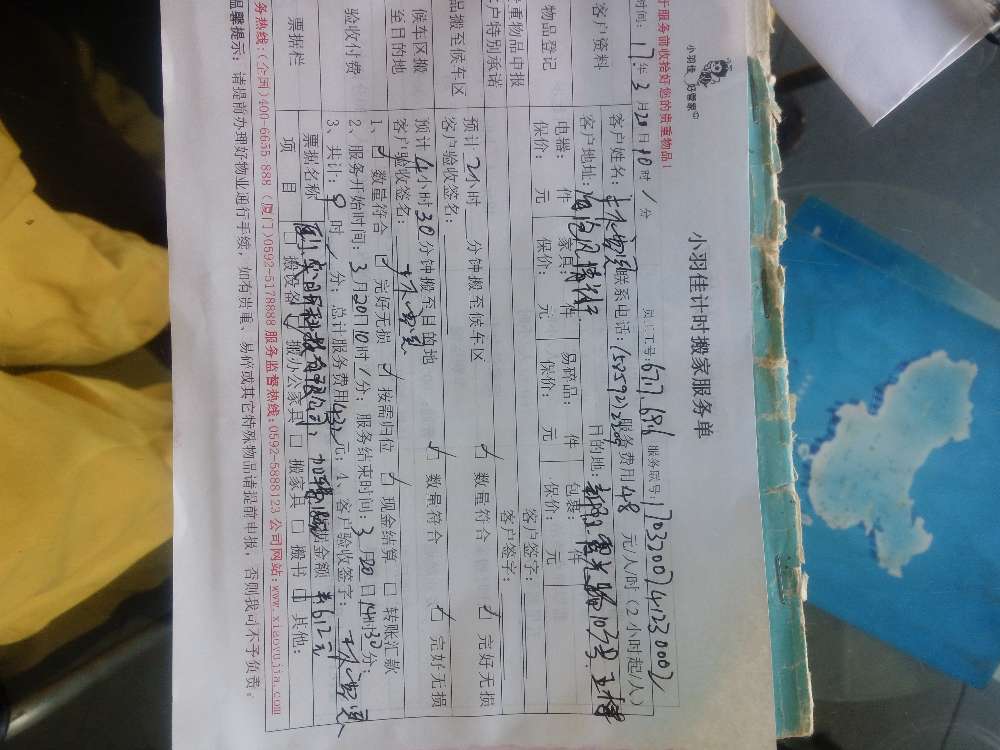 小羽佳
好管家
小羽佳计时搬家服务单
于服务前收拾好您的贵重物品！
员工工号：617,686 服务账号：170320074123000
时间：17年3月20日10时/分
客户资料
客户姓名： 联系电话： 服务费用48元/人/时（2小时起/人）
客户地址： 目的地：
物品登记
电器： 件 家具： 件 易碎品： 件 包装： 件
保价： 元 保价： 元 保价： 元 保价： 元
贵重物品申报 客户签字：
客户特别承诺 客户签字：
品搬至候车区
预计2小时 分钟搬至候车区 ☑ 数量符合 ☑ 完好无损
客户验收签名：
候车区搬至目的地
预计4小时30分钟搬至目的地 ☑ 数量符合 ☑ 完好无损
客户验收签名：
验收付费
1、☑ 数量符合 ☑ 完好无损 ☑ 按需归位 ☑ 现金结算 □ 转账汇款
2、服务开始时间：3月20日10时/分；服务结束时间：3月20日14时30分；
3、共计：9时/分；总计服务费用432元；4、客户验收签字：
票据栏
票据名称 金额 ¥612元
项目 □ 搬设备 ☑ 搬办公家具 □ 搬家具 □ 搬书 □ 其他：
务热线：（全国）400-6655 888（厦门）0592-5178888 服务监督热线：0592-5888123 公司网站：www.xiaoyujia.com
温馨提示：请提前办理好物业通行手续，如有贵重、易碎或其它特殊物品请提前申报，否则我司不予负责。